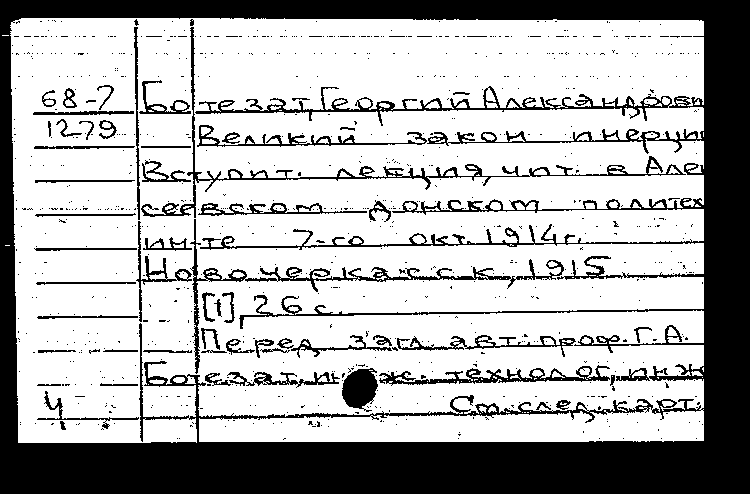 68-7 Ботезат, Георгий Александрови
1279 Великий закон инерции
Вступит. лекция, чит. в Але
сеевском донском политех
ин-те 7-го окт. 1914г.
Новочеркасск, 1915
[1], 26 с.
Перед загл. авт.: проф. Г.А.
Ботезат, инж. технолог, инж
Ч См. след. карт.